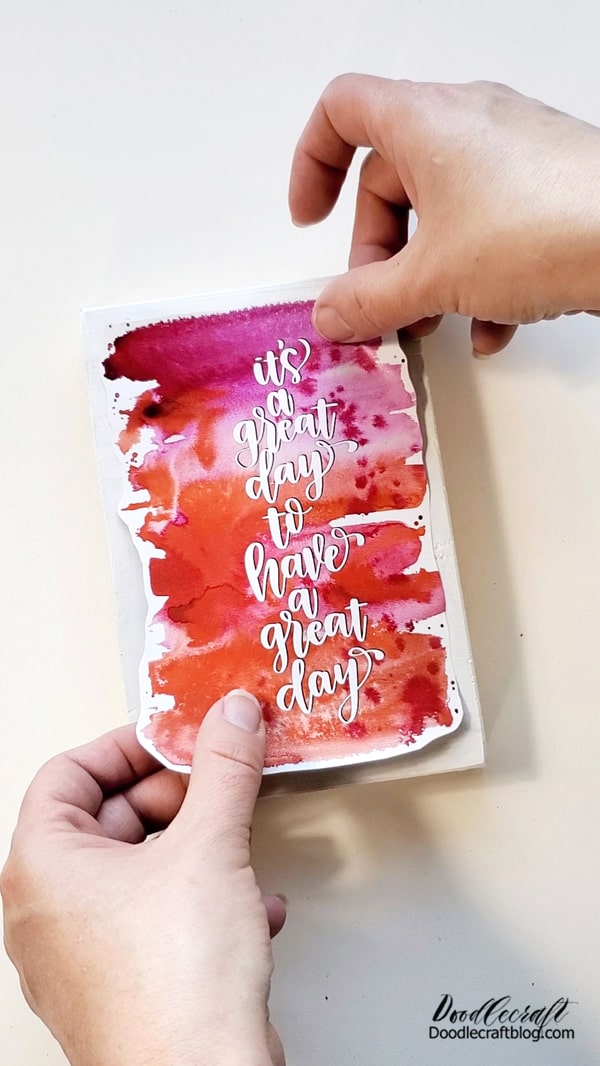 it's
a
great
day
to
have
a
great
day
Doodlecraft
Doodlecraftblog.com